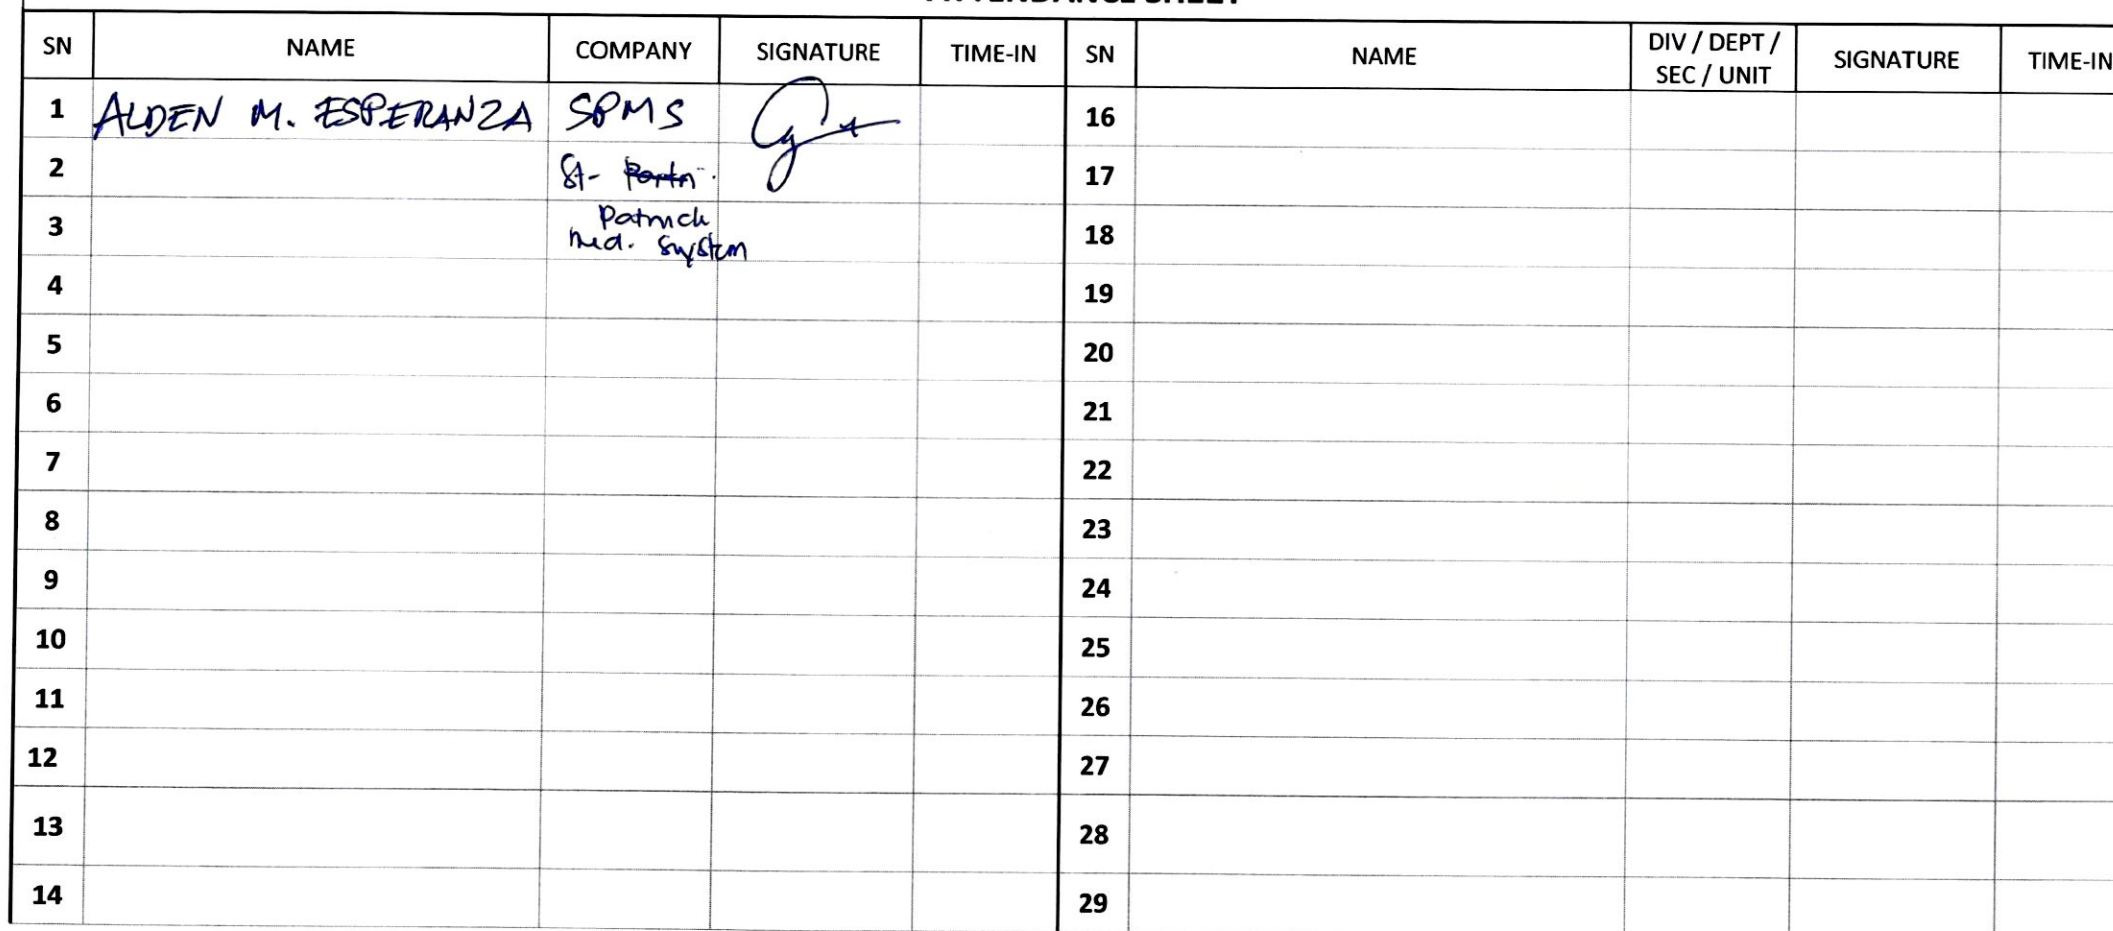 ATTENDANCE SHEET
SN NAME COMPANY SIGNATURE TIME-IN SN NAME DIV / DEPT / SEC / UNIT SIGNATURE TIME-IN
1 ALDEN M. ESPERANZA SPMS 16
2 St- 17
3 Patrick 18
Med. System
4 19
5 20
6 21
7 22
8 23
9 24
10 25
11 26
12 27
13 28
14 29